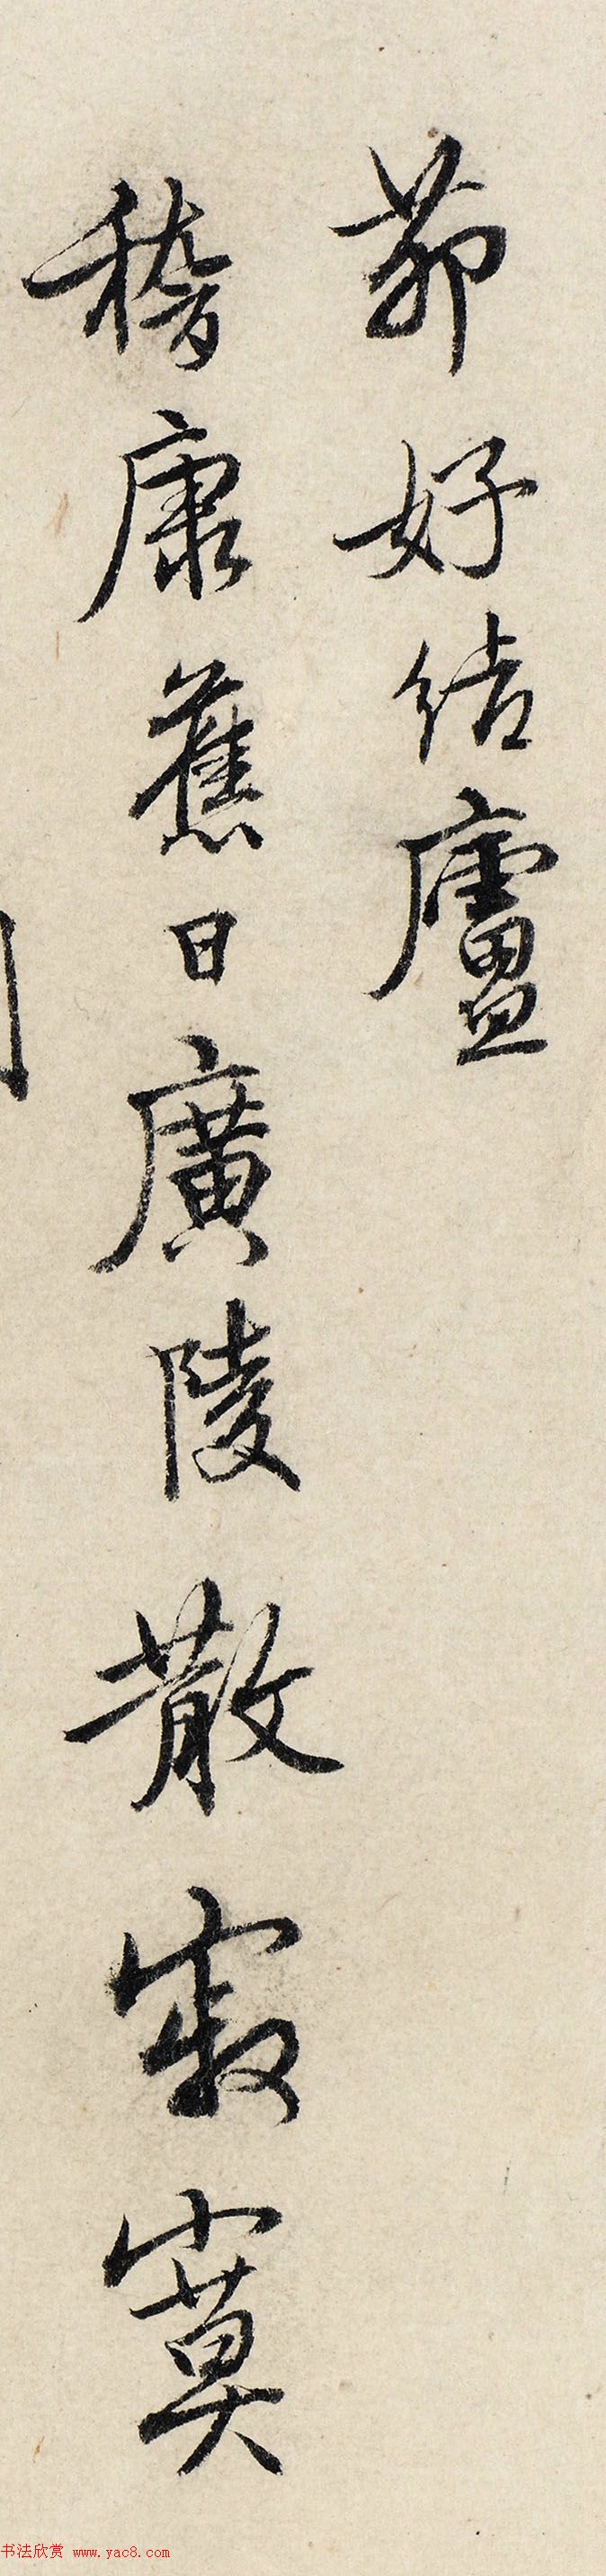 茆好結廬
稽康舊日廣陵散寂寞
书法欣赏 www.yac8.com